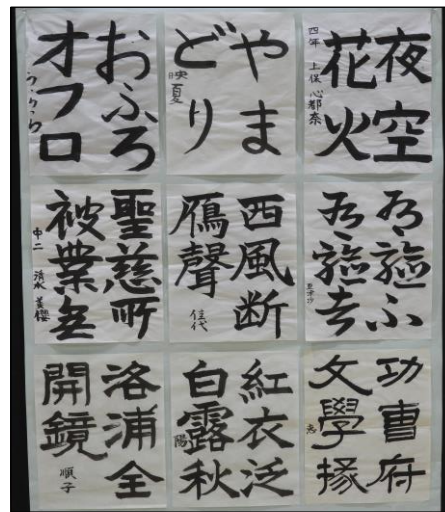 夜空
花火
四年 上保 心都奈
やま
どり
映夏
おふろ
オフロ
うらら
西風断
鴈聲
佳代
聖慈所
被業無
中二 清水 美櫻
功曹府
文學掾
紅衣泛
白露秋
陽
洛浦全
開鏡
順子